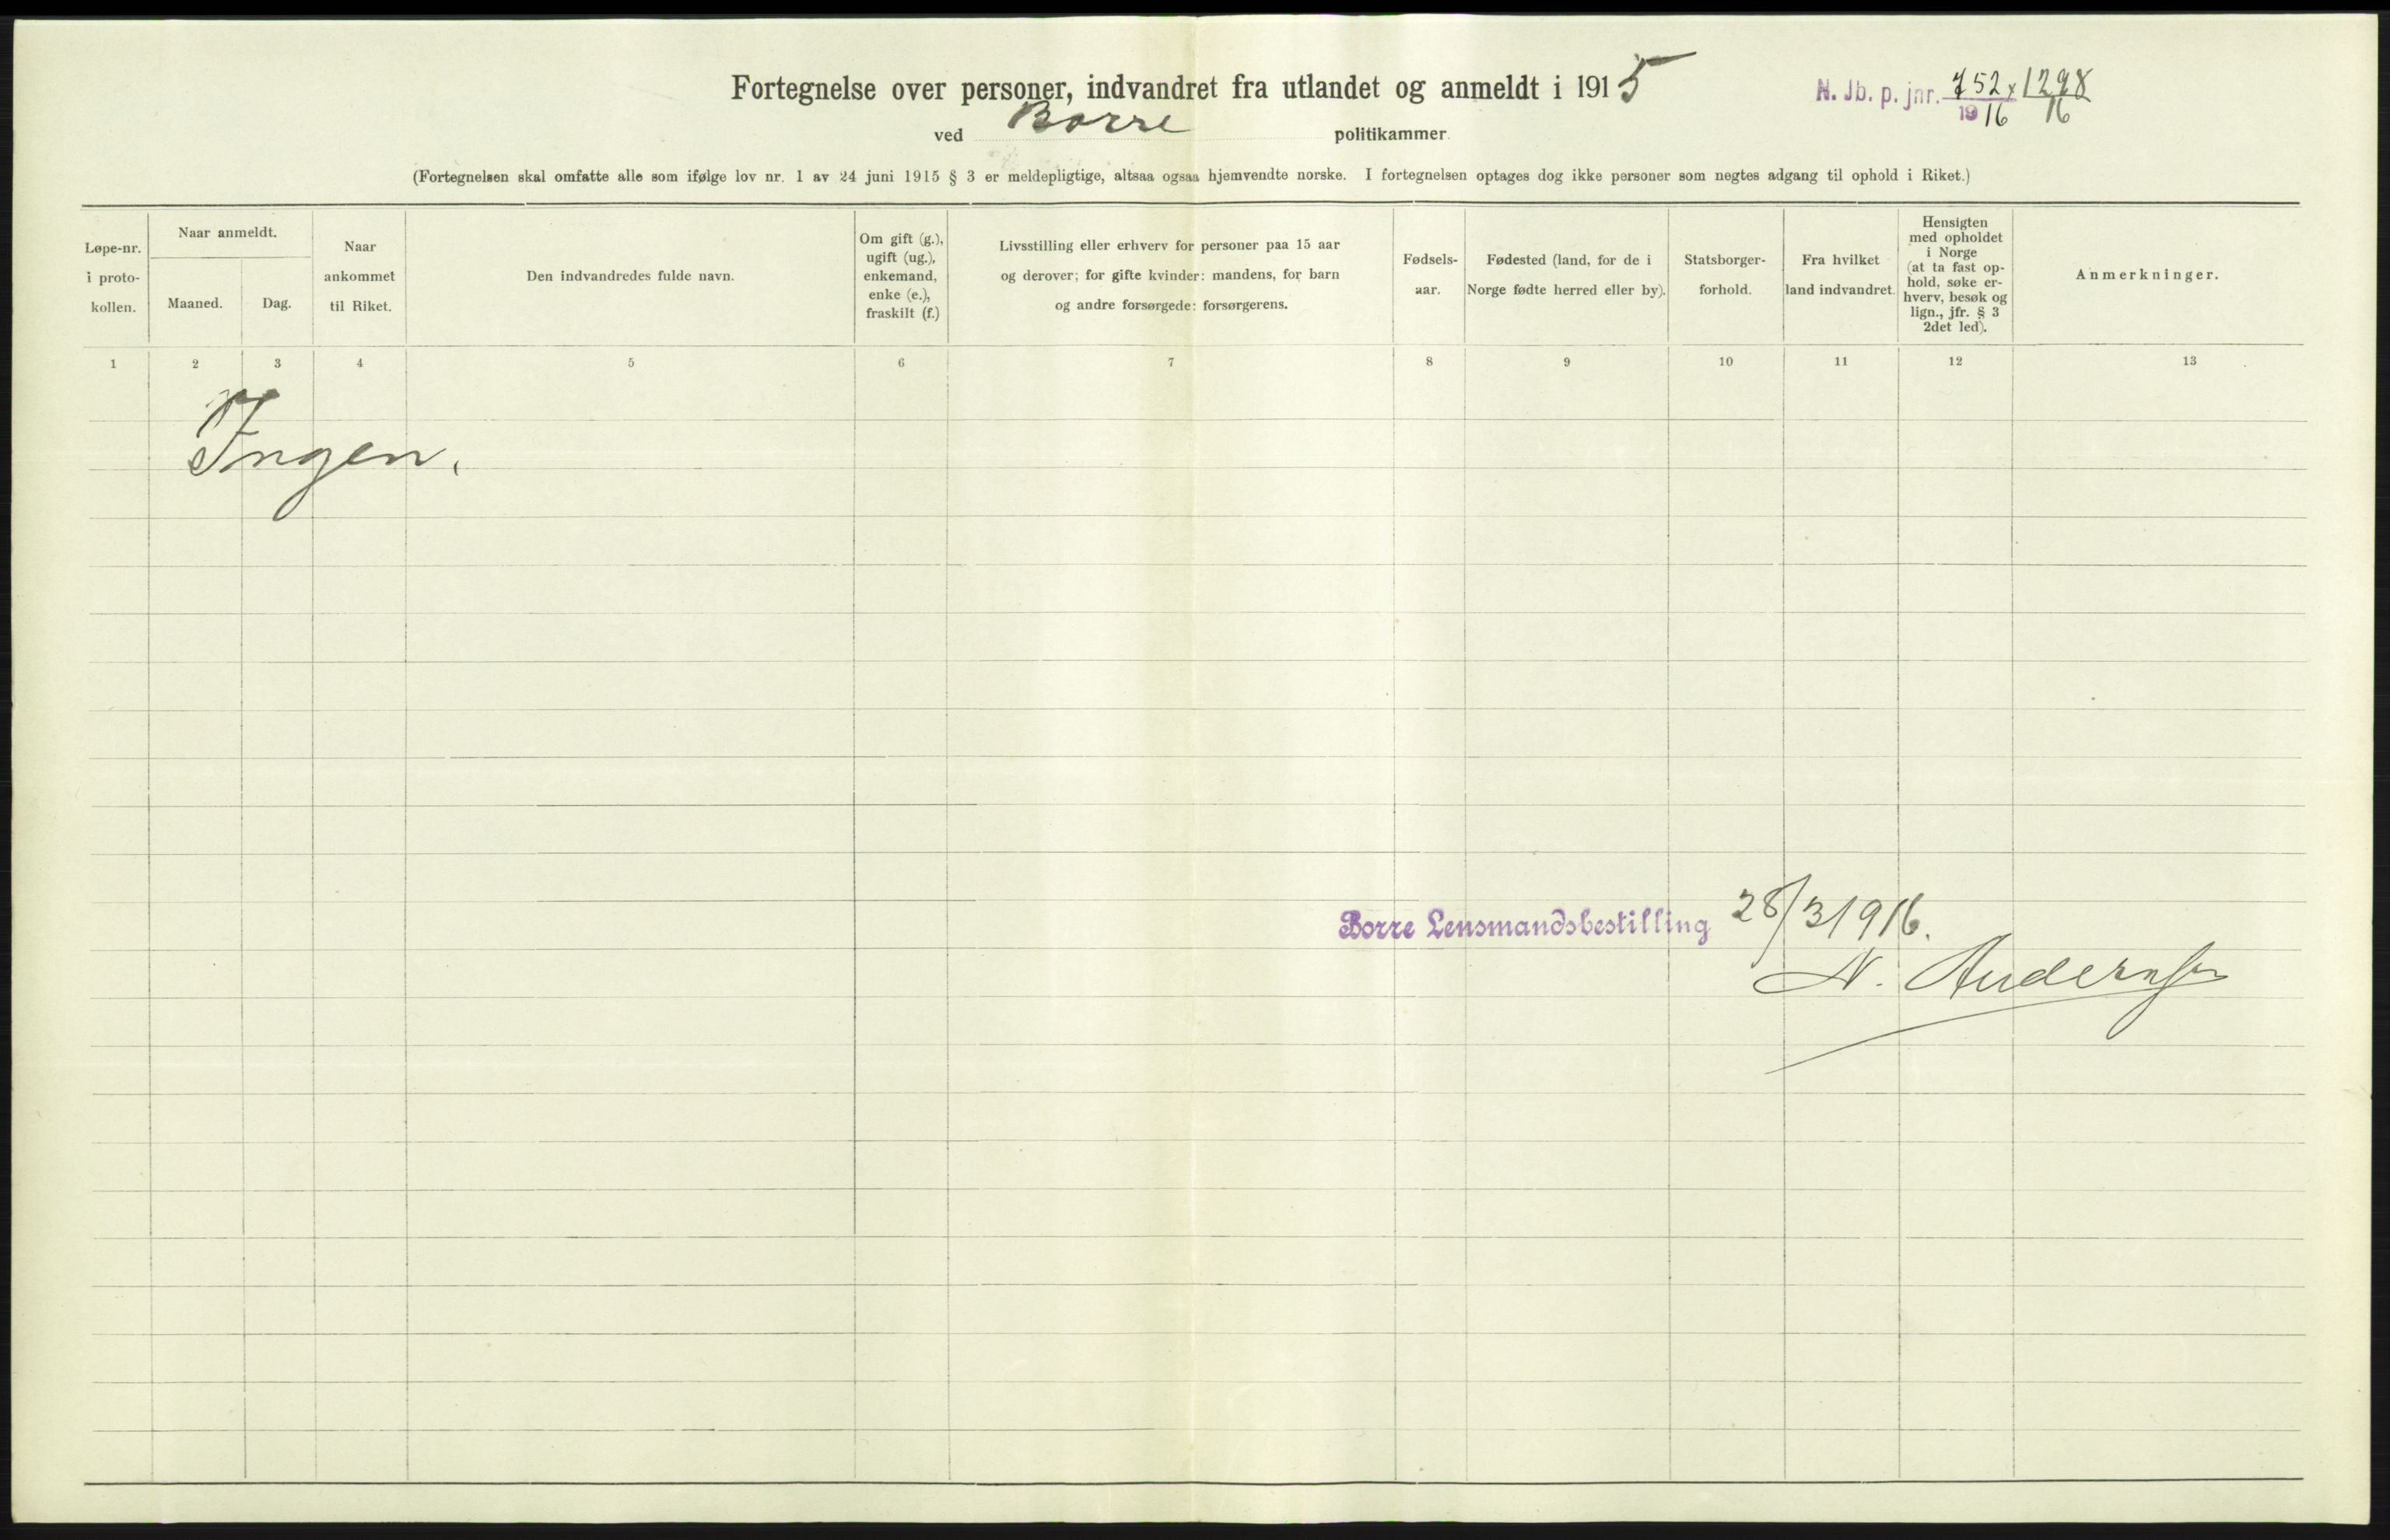 Fortegnelse over personer, indvandret fra utlandet og anmeldt i 1915
N. Jb. p. jnr. 752 x 1298
1916 16
ved Borre politikammer
(Fortegnelsen skal omfatte alle som ifølge lov nr. 1 av 24 juni 1915 § 3 er meldepligtige, altsaa ogsaa hjemvendte norske. I fortegnelsen optages dog ikke personer som negtes adgang til ophold i Riket.)
Løpe-nr.
i proto-
kollen.
Naar anmeldt.
Maaned.
Dag.
Naar
ankommet
til Riket.
Den indvandredes fulde navn.
Om gift (g.),
ugift (ug.),
enkemand,
enke (e.),
fraskilt (f.)
Livsstilling eller erhverv for personer paa 15 aar
og derover; for gifte kvinder: mandens, for barn
og andre forsørgede: forsørgerens.
Fødsels-
aar.
Fødested (land, for de i
Norge fødte herred eller by).
Statsborger-
forhold.
Fra hvilket
land indvandret.
Hensigten
med opholdet
i Norge
(at ta fast op-
hold, søke er-
hverv, besøk og
lign., jfr. § 3
2det led).
Anmerkninger.
1 2 3 4 5 6 7 8 9 10 11 12 13
Ingen.
Borre Lensmandsbestilling 28/3 1916.
N.